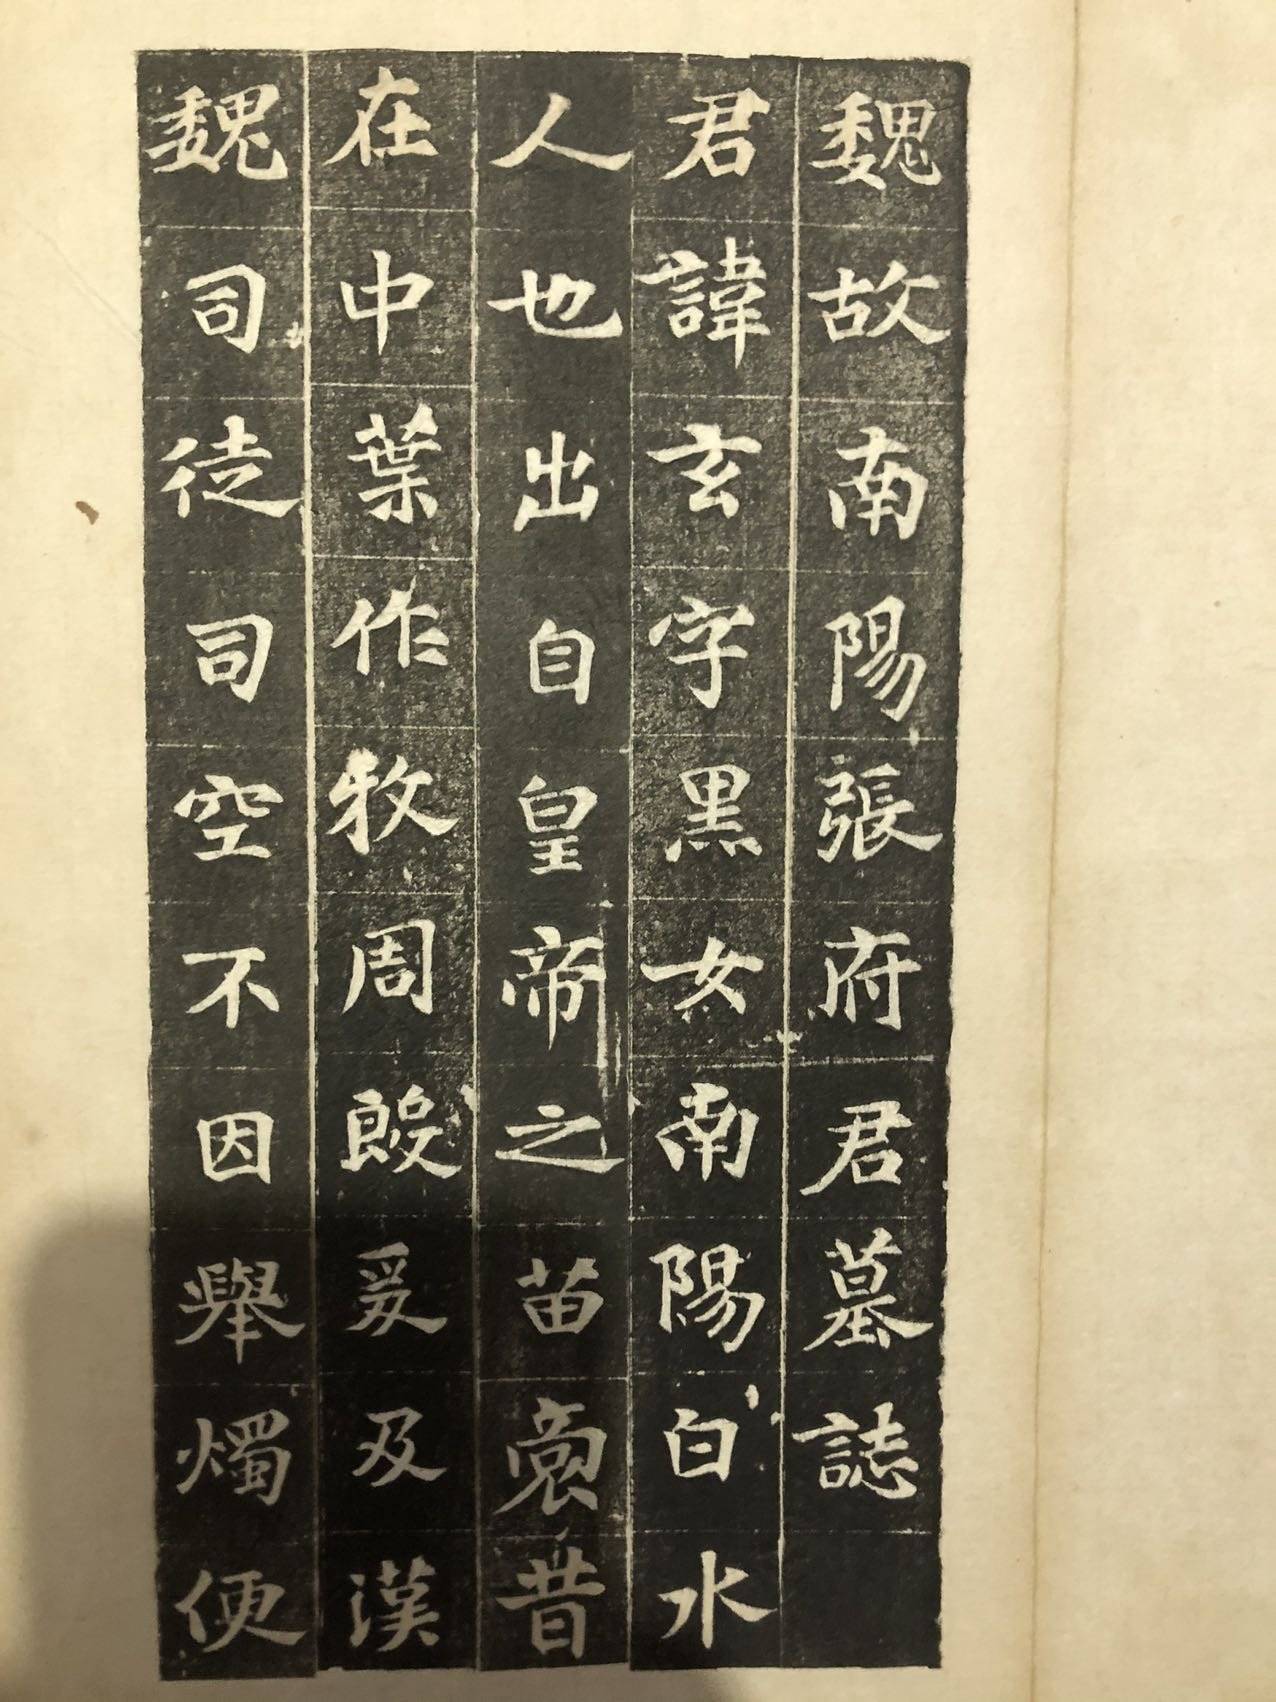 魏故南陽張府君墓誌
君諱玄字黑女南陽白水
人也出自皇帝之苗裔昔
在中葉作牧周殷爰及漢
魏司徒司空不因舉燭便